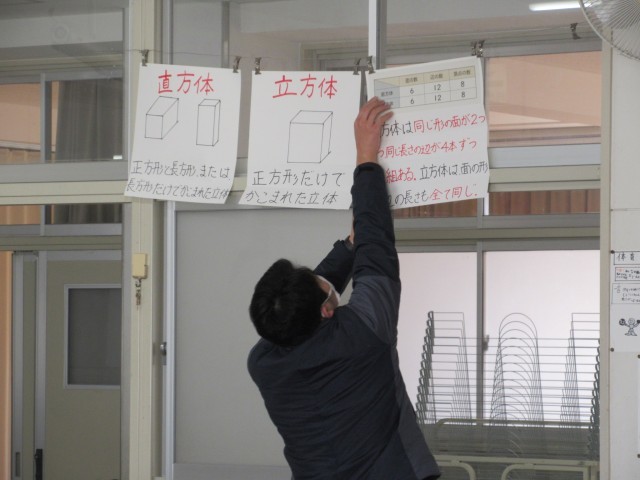 直方体
正方形と長方形、または
長方形だけでかこまれた立体
立方体
正方形だけで
かこまれた立体
面の数 辺の数 頂点の数
直方体 6 12 8
6 12 8
方体は同じ形の面が2つ
つ同じ長さの辺が4本ずつ
組ある。立方体は面の形
の長さも全て同じ。
体育